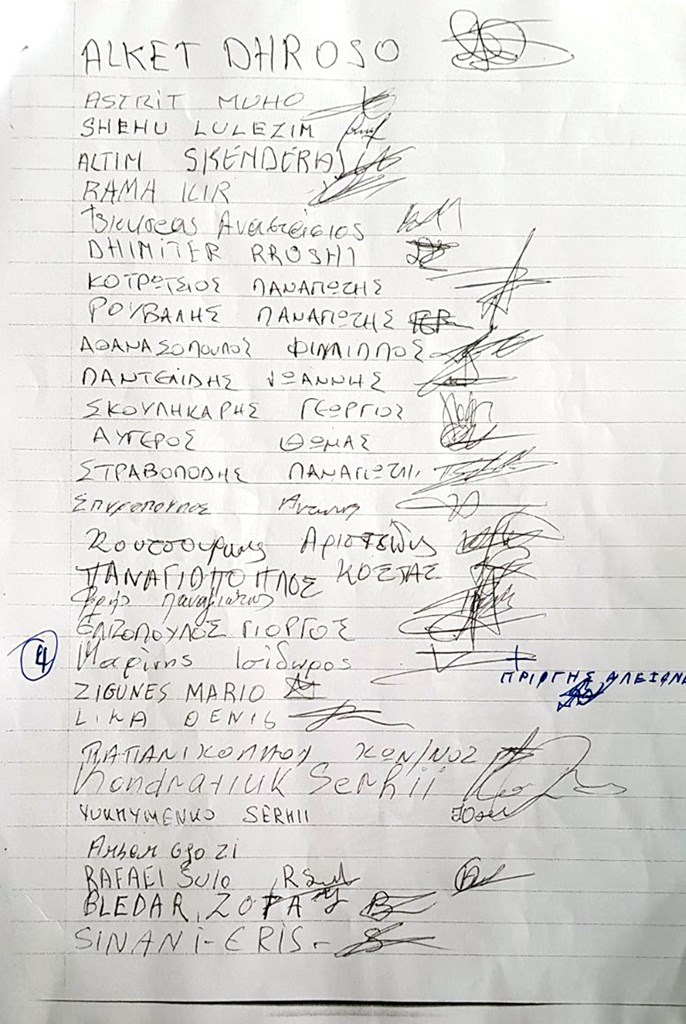 ALKET DHROSO
ASTRIT MUHO
SHEHU LULEZIM
ALTIM SKENDERAS
RAMA ILIR
Αναστάσιος
DHIMITER RROSHI
ΚΟΤΡΩΤΣΙΟΣ ΠΑΝΑΓΙΩΤΗΣ
ΡΟΥΒΑΛΗΣ ΠΑΝΑΓΙΩΤΗΣ
ΑΘΑΝΑΣΟΠΟΥΛΟΣ ΦΙΛΙΠΠΟΣ
ΠΑΝΤΕΛΙΔΗΣ ΙΩΑΝΝΗΣ
ΣΚΟΥΛΗΚΑΡΗΣ ΓΕΩΡΓΙΟΣ
ΑΥΓΕΡΟΣ ΘΩΜΑΣ
ΣΤΡΑΒΟΠΟΔΗΣ ΠΑΝΑΓΙΩΤΗΣ
Σπυρόπουλος
Κουτσουρης Αριστείδης
ΠΑΝΑΓΙΟΠΟΠΛΟΣ ΚΟΣΤΑΣ
Παναγιώτης
ΓΙΟΡΓΟΣ
4 Μαρίνης Ισίδωρος
ΠΡΙΑΓΗΣ
ZIGUNES MARIO
LIKA DENIS
ΠΑΠΑΝΙΚΟΛΑΟΥ ΚΩΝ/ΝΟΣ
Kondratiuk Serhii
YUKHYMENKO SERHII
Arben Gjozi
RAFAEl Sulo
BLEDAR, ZOTA
SINANI-ERIS-